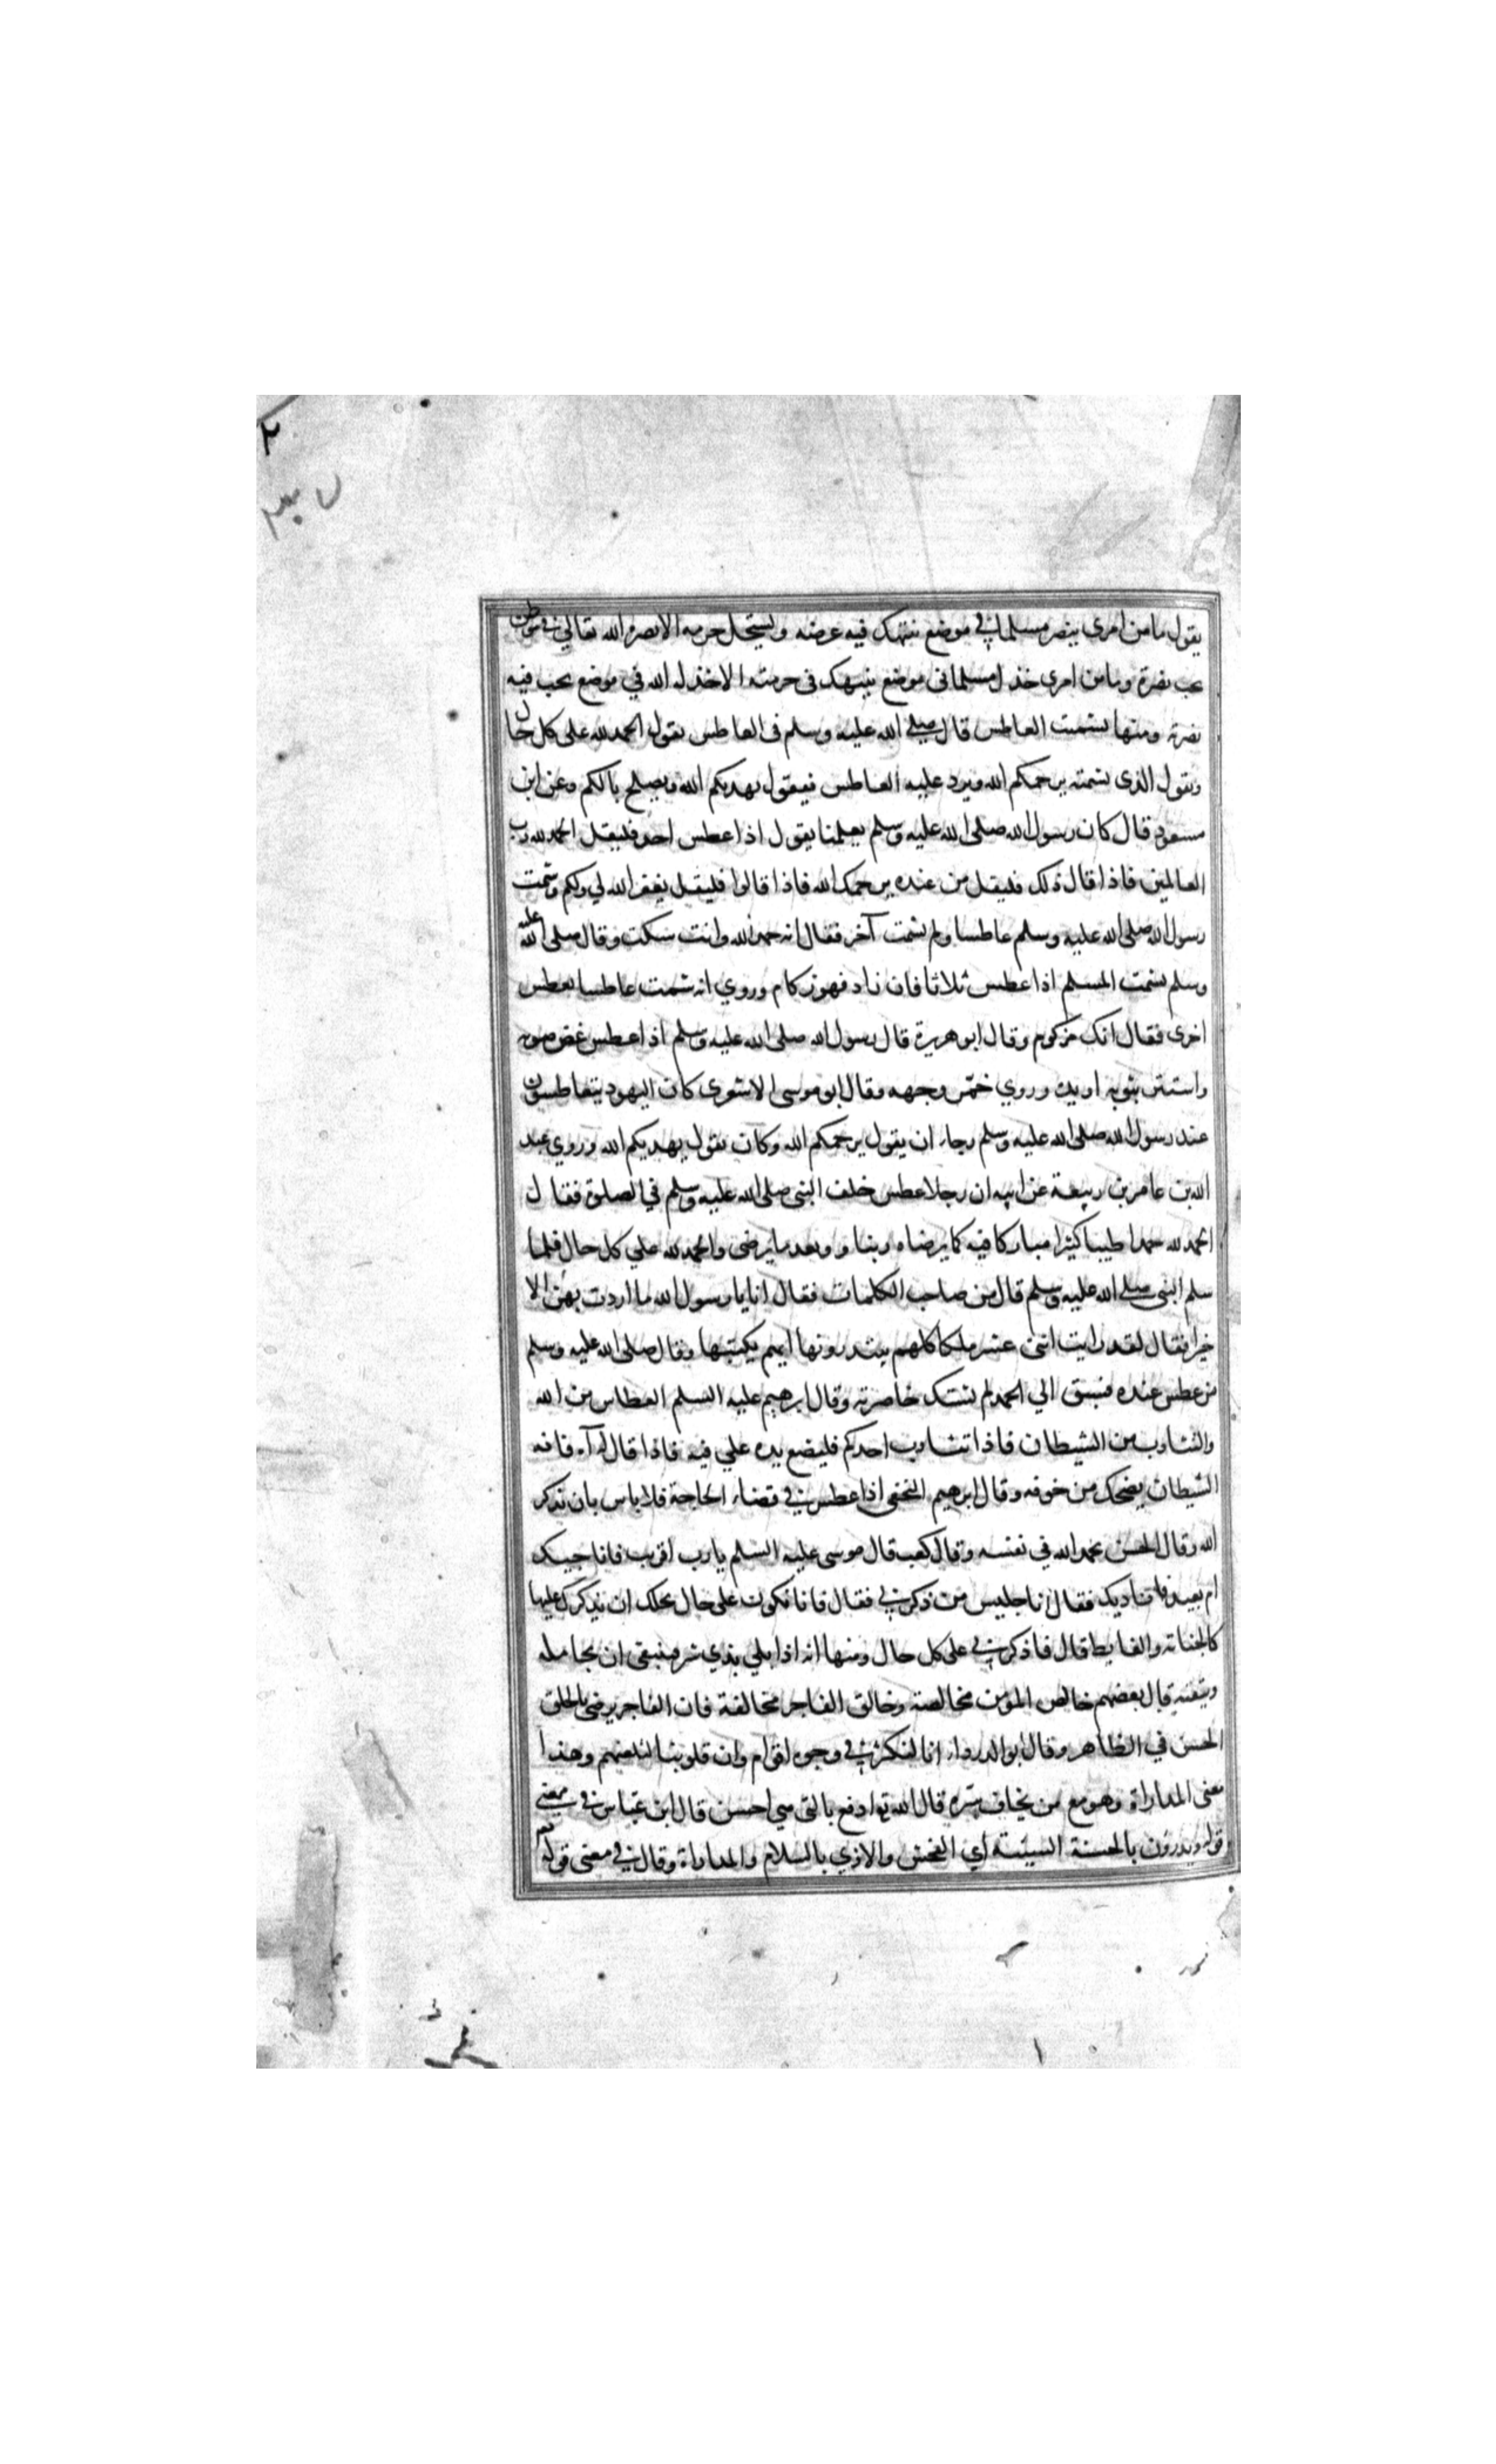 يقول ما من امرى ينصر مسلما في موضع ينتهك فيه عرضه ويستحل حرمه الا نصره الله تعالي في موطن
يحب نصرة وما من امرى خذل مسلما في موضع ينتهك فى حرمته الا خذله الله في موضع يحب فيه
نصرته ومنها تشميت العاطس قال صلي الله عليه وسلم فى العاطس يقول الحمد لله على كل حال
ويقول الذى يشمته يرحمكم الله ويرد عليه العاطس فيقول يهديكم الله ويصلح بالكم وعن ابن
مسعود قال كان رسول الله صلى الله عليه وسلم يعلمنا يقول اذا عطس احد فليقل الحمد لله رب
العالمين فاذا قال ذلك فليقل من عنده يرحمك الله فاذا قالوا فليقل يغفر الله لي ولكم وشمت
رسول الله صلى الله عليه وسلم عاطسا ولم يشمت آخر فقال انه حمد الله وانت سكت وقال صلى الله عليه
وسلم يشمت المسلم اذا عطس ثلاثا فان زاد فهو زكام وروي انه شمت عاطسا فعطس
اخرى فقال انك مزكوم وقال ابو هريرة قال رسول الله صلى الله عليه وسلم اذا عطس غض صوته
واستتر بثوبه او يده وروي خمر وجهه وقال ابو موسى الاشوى كان اليهود يتعاطسون
عند رسول الله صلى الله عليه وسلم رجاء ان يقول يرحمكم الله وكان يقول يهديكم الله وروي عبد
الله بن عامر بن ربيعة عن ابيه ان رجلا عطس خلف النبى صلى الله عليه وسلم في الصلوة فقال
الحمد لله حمدا طيبا كثيرا مباركا فيه كما يرضاه ربنا و وبعد ما يرضى والحمد لله علي كل حال فلما
سلم النبى صلي الله عليه وسلم قال من صاحب الكلمات فقال انا يا رسول الله ما اردت بهن الا
خيرا فقال لقد رايت اثنى عشر ملكا كلهم يبتدرونها ايهم يكتبها وقال صلى الله عليه وسلم
من عطس عنده فسبق الي الحمد لم تشتك خاصرته وقال ابرهيم عليه السلم العطاس من الله
والتثاوب من الشيطان فاذا تثاوب احدكم فليضع يده علي فيه فاذا قال آه آه فانه
الشيطان يضحك من خوفه وقال ابرهيم النخعى اذا عطس في قضاء الحاجة فلا باس بان يذكر
الله وقال الحسن يحمد الله في نفسه وقال كعب قال موسى عليه السلم يا رب اقريب فاناجيك
ام بعيد فاناديك فقال انا جليس من ذكرني فقال فانا نكون على حال نجلك ان نذكرك عليها
كالجنابة والغايط قال فاذكرني على كل حال ومنها انه اذا بلي بذي شر فينبغى ان يجامله
ويتقيه قال بعضهم خالص المؤمن مخالصة وخالق الفاجر مخالفة فان الفاجر يرضى بالخلق
الحسن في الظاهر وقال ابو الدرداء انا لنكشر في وجوه اقوام وان قلوبنا لتلعنهم وهذا
معنى المداراة وهو مع من يخاف شره قال الله تع ادفع بالتى هي احسن قال ابن عباس في معنى
قوله ويدرؤن بالحسنة السيئة اي الفحش والاذي بالسلام والمداراة وقال في معنى قوله